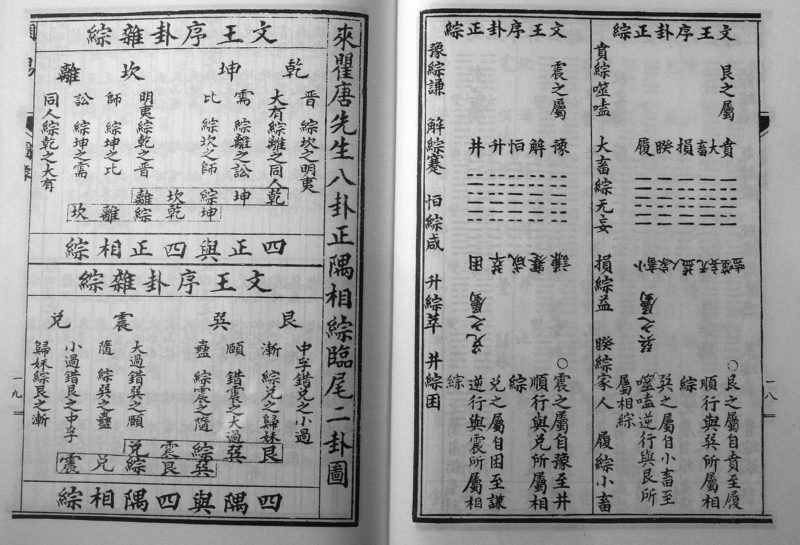 文王序卦正綜
艮之屬
賁 大畜 損 睽 履
噬嗑 无妄 益 家人 小畜
巽之屬
○艮之屬自賁至履
順行與巽所屬相
綜
巽之屬自小畜至
噬嗑逆行與艮所
屬相綜
賁綜噬嗑 大畜綜无妄 損綜益 睽綜家人 履綜小畜
文王序卦正綜
震之屬
豫 解 恒 升 井
謙 蹇 咸 萃 困
兌之屬
○震之屬自豫至井
順行與兌所屬相
綜
兌之屬自困至謙
逆行與震所屬相
綜
豫綜謙 解綜蹇 恒綜咸 升綜萃 井綜困
一八
來瞿唐先生八卦正隅相綜臨尾二卦圖
文王序卦雜綜
乾 坤 坎 離
晉 綜坎之明夷
大有綜離之同人
需 綜離之訟
比 綜坎之師
明夷綜乾之晉
師 綜坤之比
訟 綜坤之需
同人綜乾之大有
乾坤綜坎離
坤乾綜離坎
四正與四正相綜
文王序卦雜綜
艮 巽 震 兌
中孚錯兌之小過
漸 綜兌之歸妹
頤 錯震之大過
蠱 綜震之隨
大過錯巽之頤
隨 綜巽之蠱
小過錯艮之中孚
歸妹綜艮之漸
艮巽綜震兌
巽艮綜兌震
四隅與四隅相綜
一九